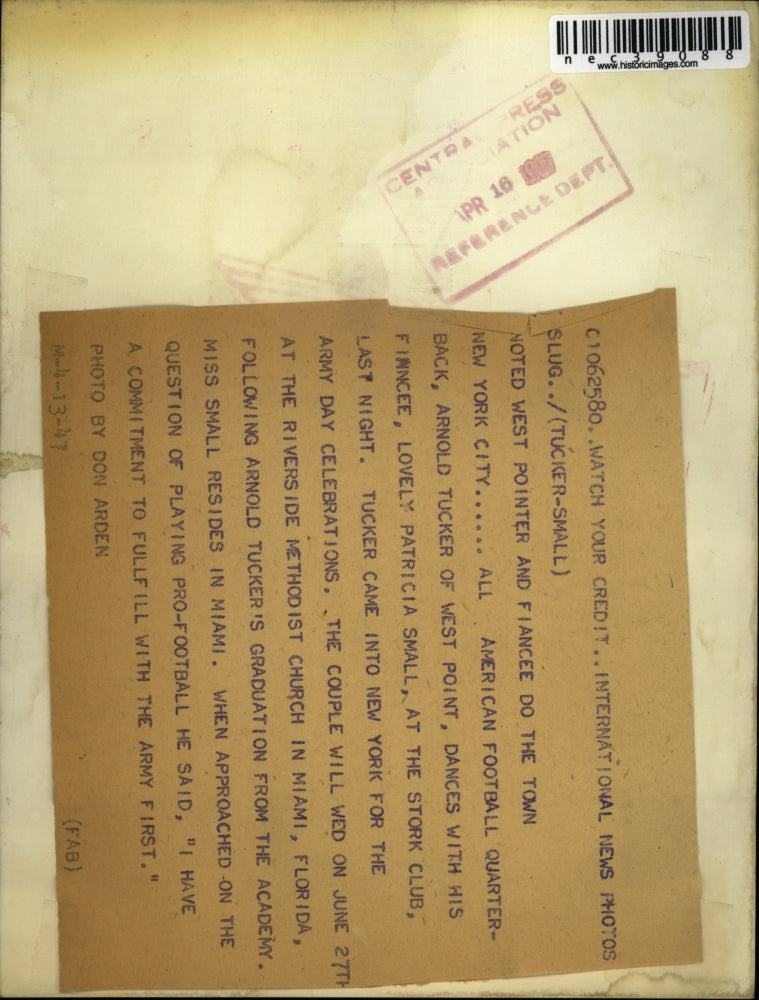 nec39088
www.historicimages.com
CENTRAL PRESS
ASSOCIATION
APR 16 1947
REFERENCE DEPT.
C1062580..WATCH YOUR CREDIT..INTERNATIONAL NEWS PHOTOS
SLUG../(TUCKER-SMALL)
NOTED WEST POINTER AND FIANCEE DO THE TOWN
NEW YORK CITY...... ALL AMERICAN FOOTBALL QUARTER-
BACK, ARNOLD TUCKER OF WEST POINT, DANCES WITH HIS
FINNCEE, LOVELY PATRICIA SMALL, AT THE STORK CLUB,
LAST NIGHT. TUCKER CAME INTO NEW YORK FOR THE
ARMY DAY CELEBRATIONS. THE COUPLE WILL WED ON JUNE 27TH
AT THE RIVERSIDE METHODIST CHURCH IN MIAMI, FLORIDA,
FOLLOWING ARNOLD TUCKER'S GRADUATION FROM THE ACADEMY.
MISS SMALL RESIDES IN MIAMI. WHEN APPROACHED ON THE
QUESTION OF PLAYING PRO-FOOTBALL HE SAID, "I HAVE
A COMMITMENT TO FULLFILL WITH THE ARMY FIRST."
PHOTO BY DON ARDEN
M-4-13-47 (FAB)